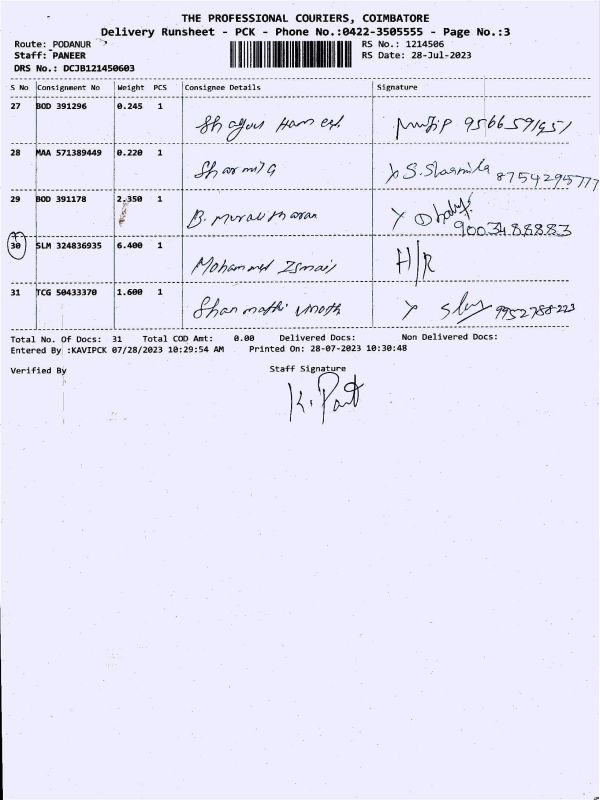 THE PROFESSIONAL COURIERS, COIMBATORE
Delivery Runsheet - PCK - Phone No.:0422-3505555 - Page No.:3
Route: PODANUR RS No.: 1214506
Staff: PANEER RS Date: 28-Jul-2023
DRS No.: DCJB121450603
S No Consignment No Weight PCS Consignee Details Signature
27 BOD 391296 0.245 1
Shagul Hameed 9566591951
28 MAA 571389449 0.220 1
Sharmila S. Sharmila 8754295777
29 BOD 391178 2.350 1
B. Muralitharan 9003488883
30 SLM 324836935 6.400 1
Mohammed Ismail H/R
31 TCG 50433370 1.600 1
Shanmathi vinoth 9952788223
Total No. Of Docs: 31 Total COD Amt: 0.00 Delivered Docs: Non Delivered Docs:
Entered By :KAVIPCK 07/28/2023 10:29:54 AM Printed On: 28-07-2023 10:30:48
Verified By Staff Signature